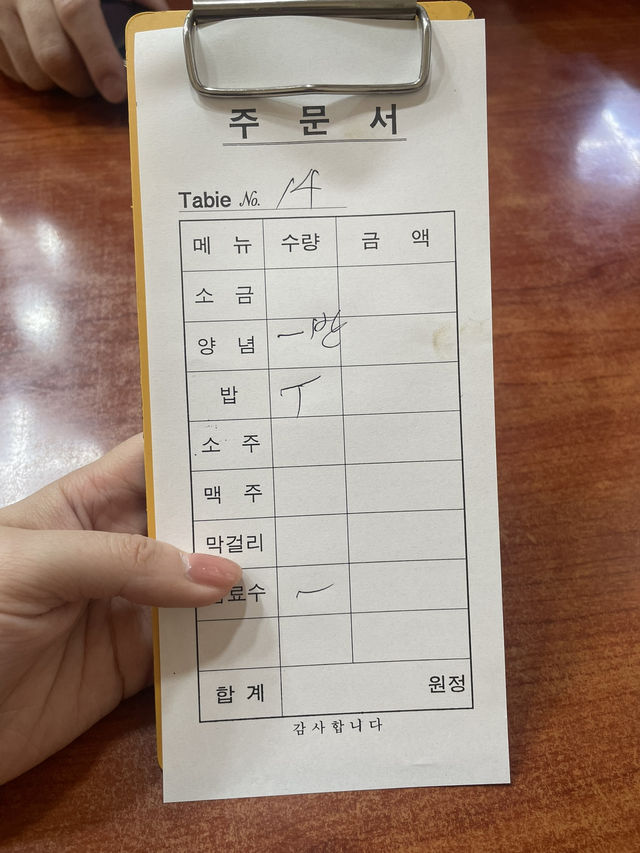 주 문 서
Tabie No. 14
메 뉴 수량 금 액
소 금
양 념 一반
밥 T
소 주
맥 주
막걸리
료수 一
합 계 원정
감사합니다